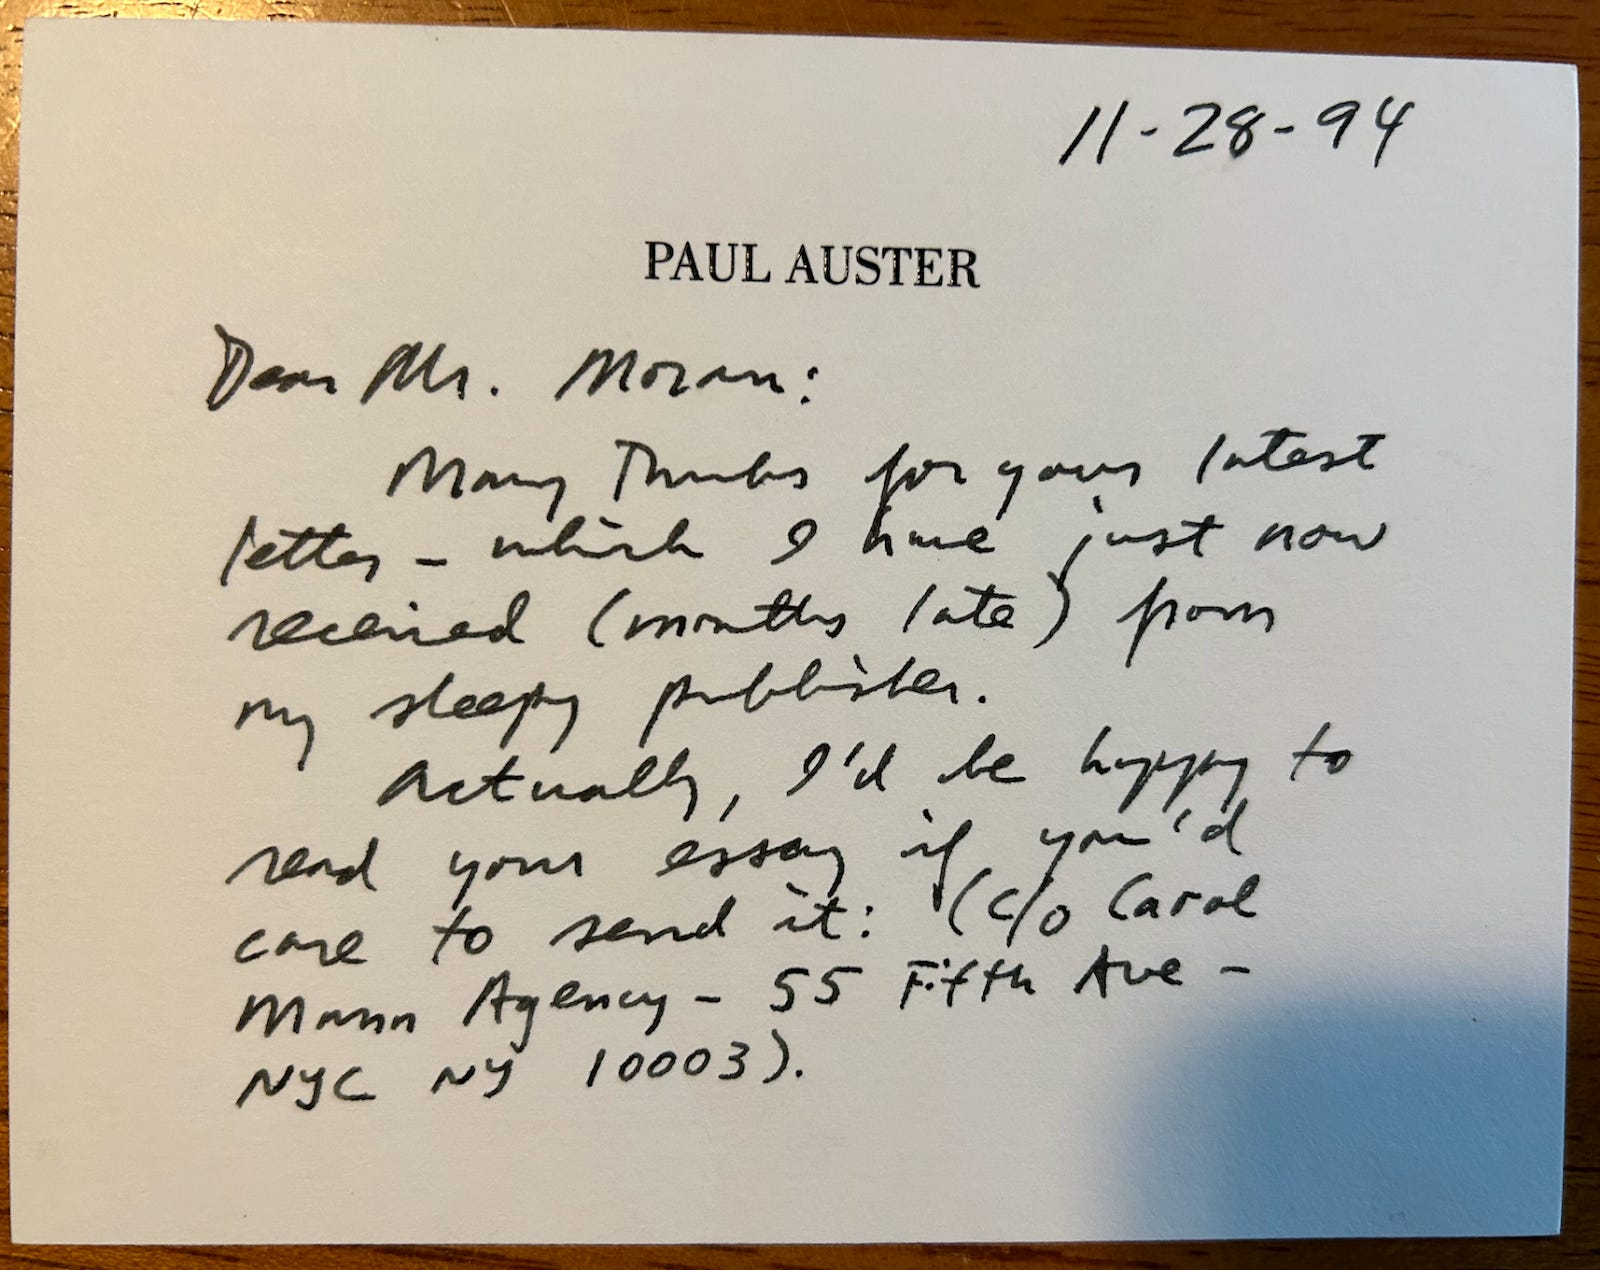 11-28-94
PAUL AUSTER
Dear Mr. Moran:
Many Thanks for your latest
letter - which I have just now
received (months late) from
my sleepy publisher.
Actually, I'd be happy to
read your essay if you'd
care to send it: (c/o Carol
Mann Agency - 55 Fifth Ave -
NYC NY 10003).